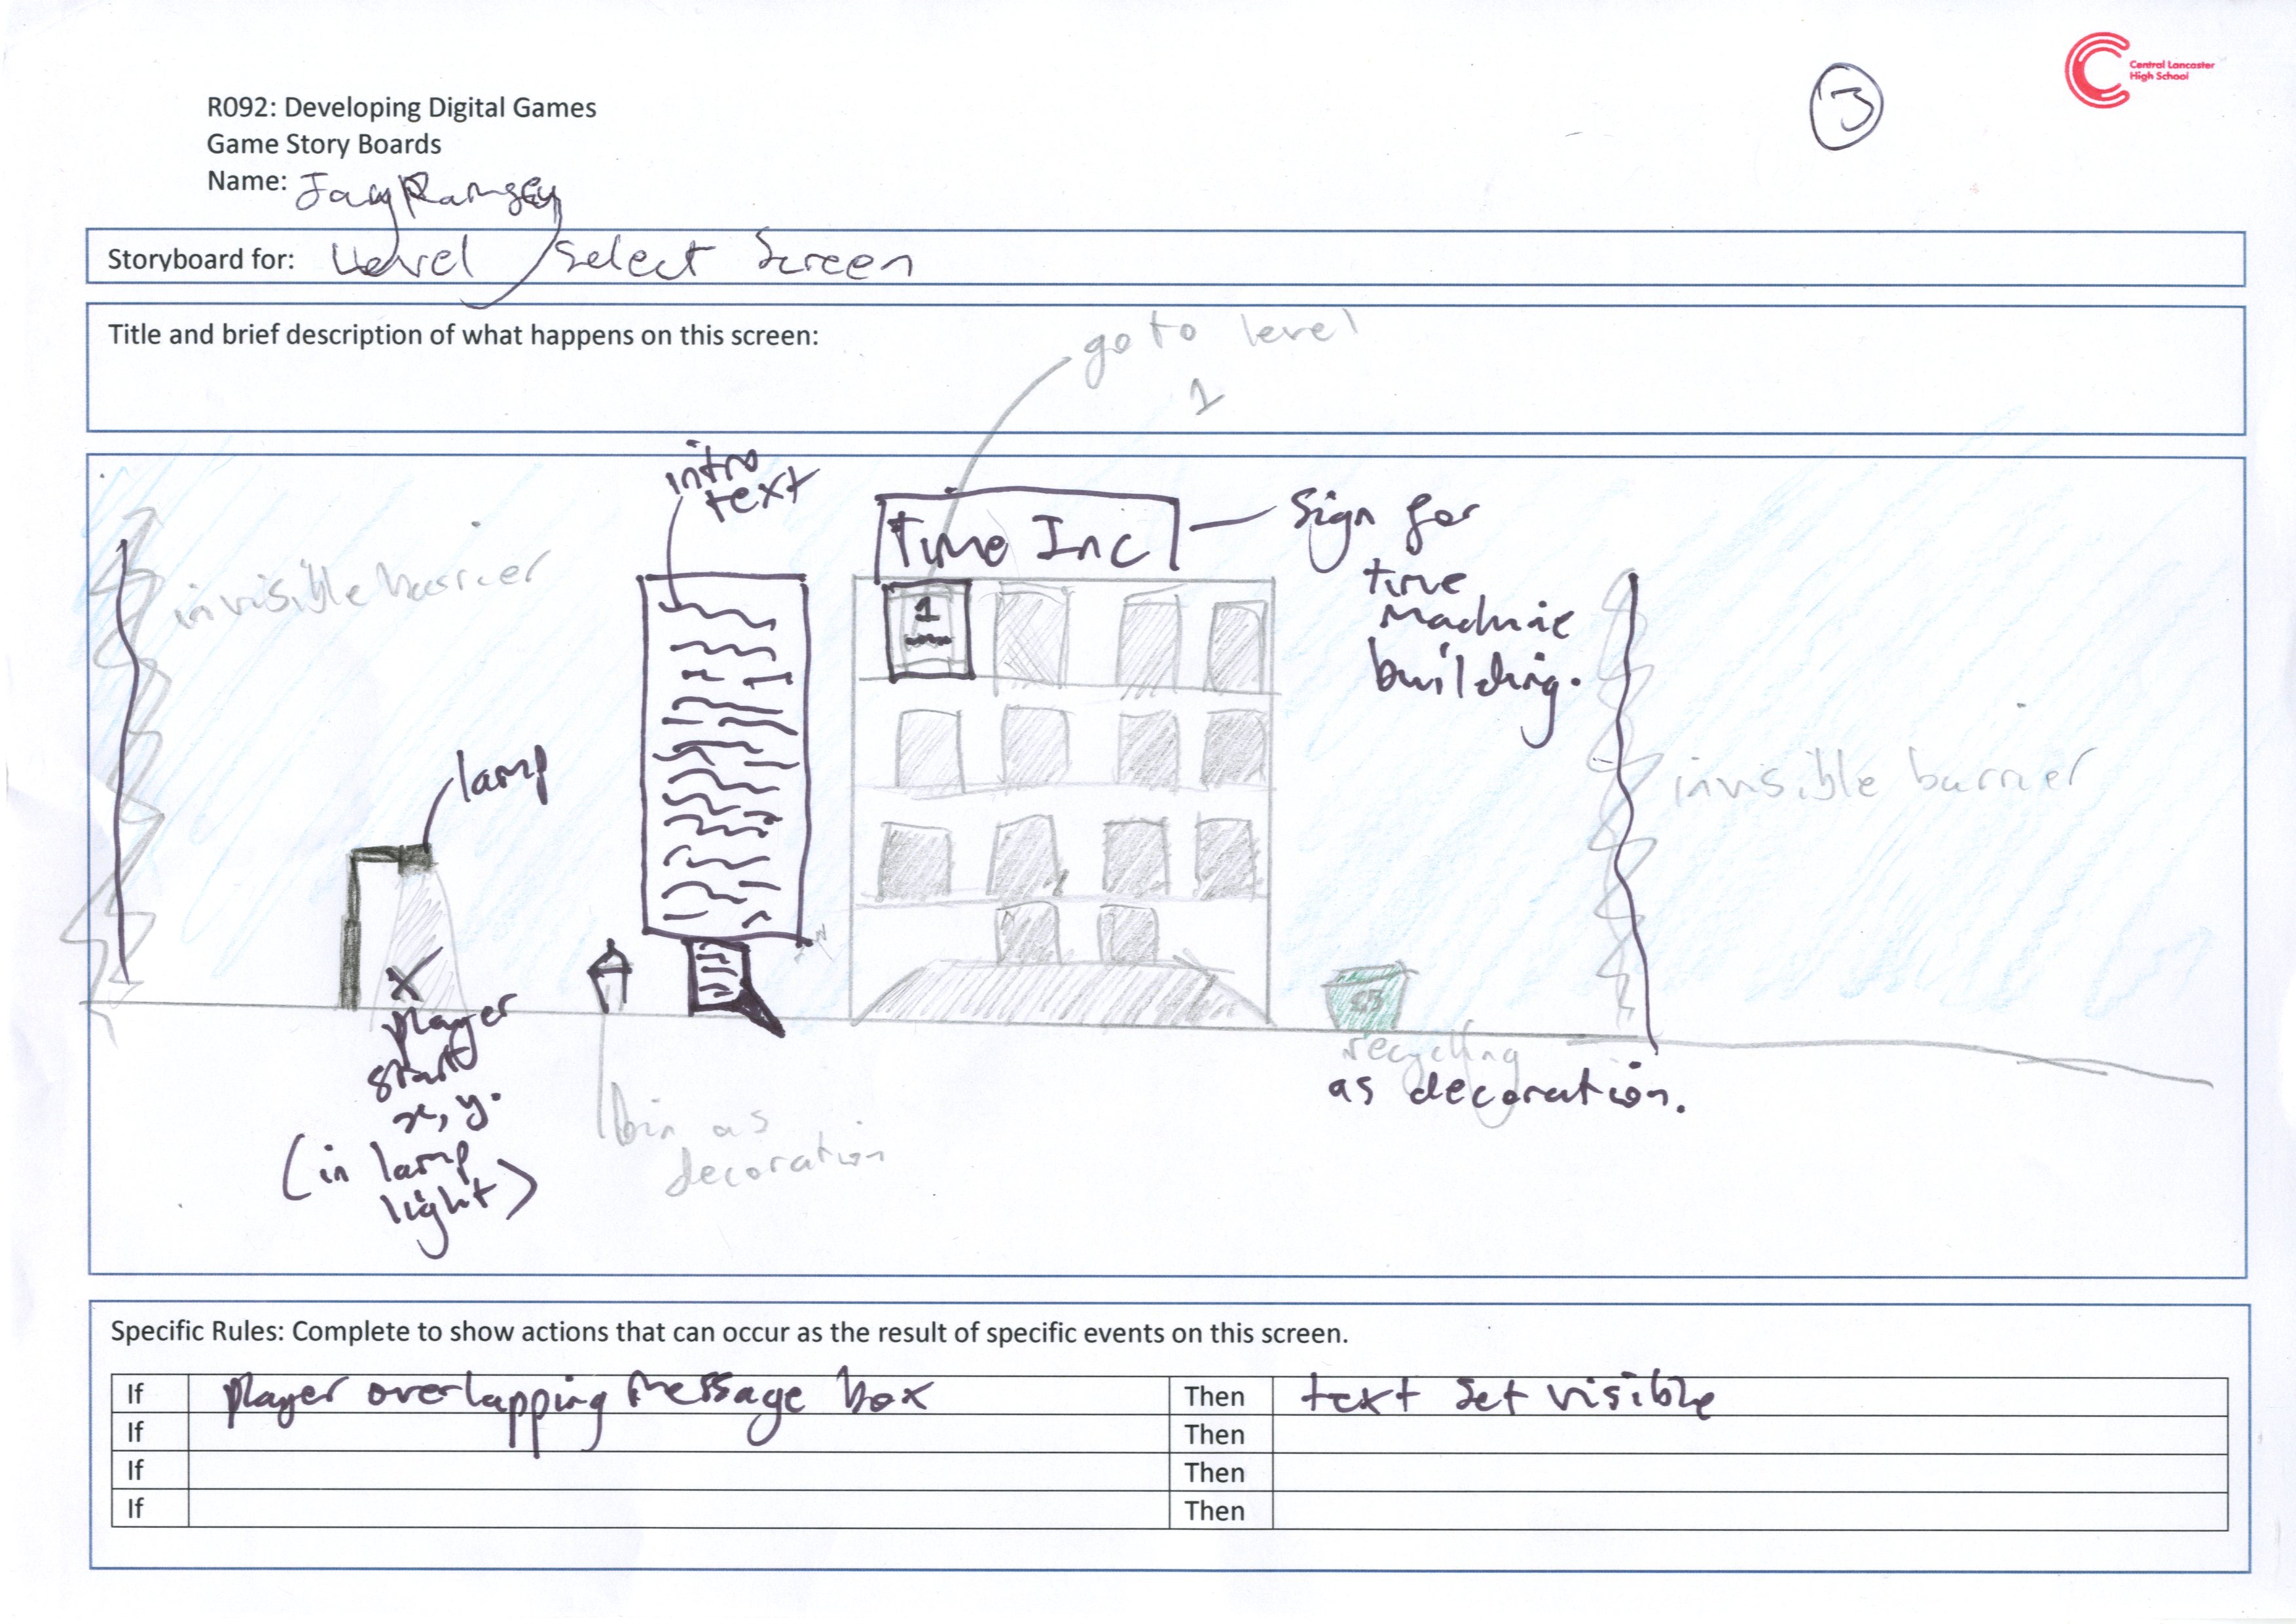 Central Lancaster
High School
3
R092: Developing Digital Games
Game Story Boards
Name: Jay Ramsey
Storyboard for: Level Select Screen
Title and brief description of what happens on this screen:
go to level
1
intro
text
Time Inc
Sign for
time
machine
building.
invisible barrier
1
invisible barrier
lamp
x
player
start
x, y.
(in lamp
light)
bin as
decoration
recycling
as decoration.
Specific Rules: Complete to show actions that can occur as the result of specific events on this screen.
If player overlapping message box Then text set visible
If Then
If Then
If Then